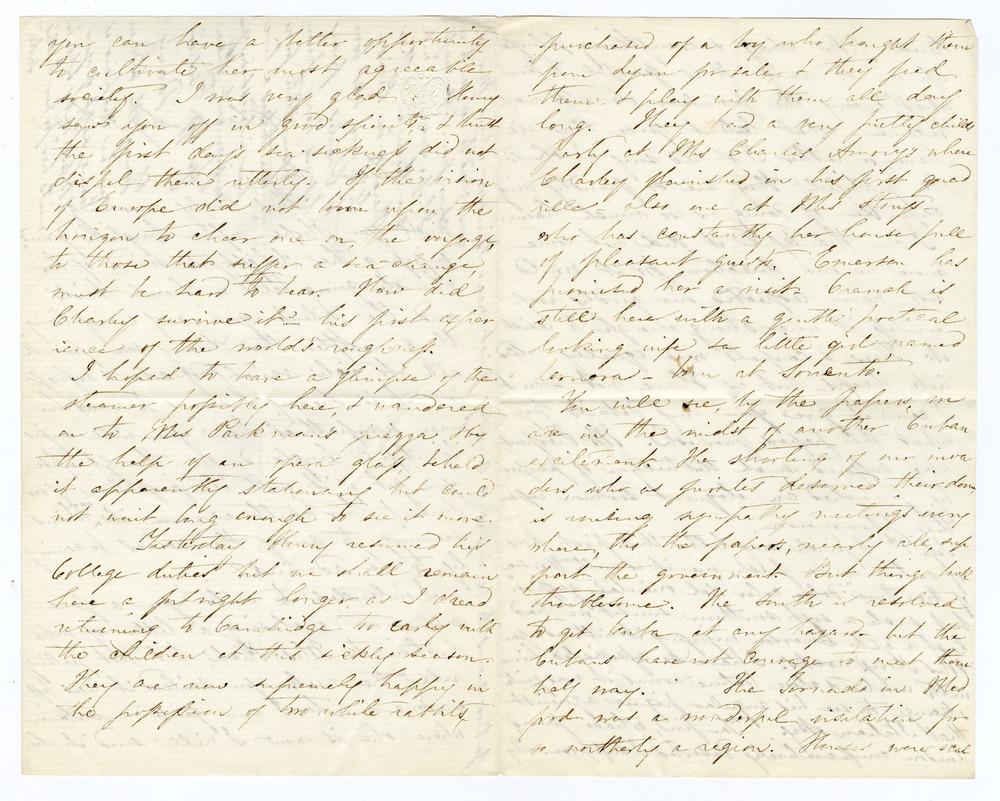 you can have a better opportunity
to cultivate her most agreeable
society. I was very glad Henry
saw you off in good spirits, & trust
the first day's sea-sickness did not
dispel them utterly. If the vision
of Europe did not loom upon the
horizon to cheer one on, the voyage,
to those that suffer a sea-change,
must be hard to bear. How did
Charley survive it – his first exper
ience of the world's roughness.
I hoped to have a glimpse of the
steamer possibly here, & wandered
on to Mrs Parkman's piazza, & by
the help of an opera glass, beheld
it apparently stationary but could
not wait long enough to see it move.
Yesterday Henry resumed his
College duties but we shall remain
here a fortnight longer as I dread
returning to Cambridge so early with
the children at this sickly season.
They are now supremely happy in
the possession of two white rabbits,
purchased of a boy who bought them
from Lynn for sale, & they feed
them & play with them all day
long. They had a very pretty child's
party at Mrs Charles Amory's where
Charley flourished in his first quad
rille, also one at Mrs
who has constantly her house full
of pleasant guests. Emerson has
promised her a visit. Cranch is
still here with a gentle poetical
looking wife & a little girl named
Leonora – born at Sorrento.
You will see, by the papers, we
are in the midst of another Cuban
excitement. The shooting of our inva
ders, who as pirates deserved their doom
is uniting sympathy meetings every
where, tho' the papers, nearly all, sup
port the government. But things look
troublesome. The South is resolved
to get Cuba, at any hazard but the
Cubans have not courage to meet them
half way. The Tornado in Med
ford was a wonderful visitation for
so northerly a region. Houses were